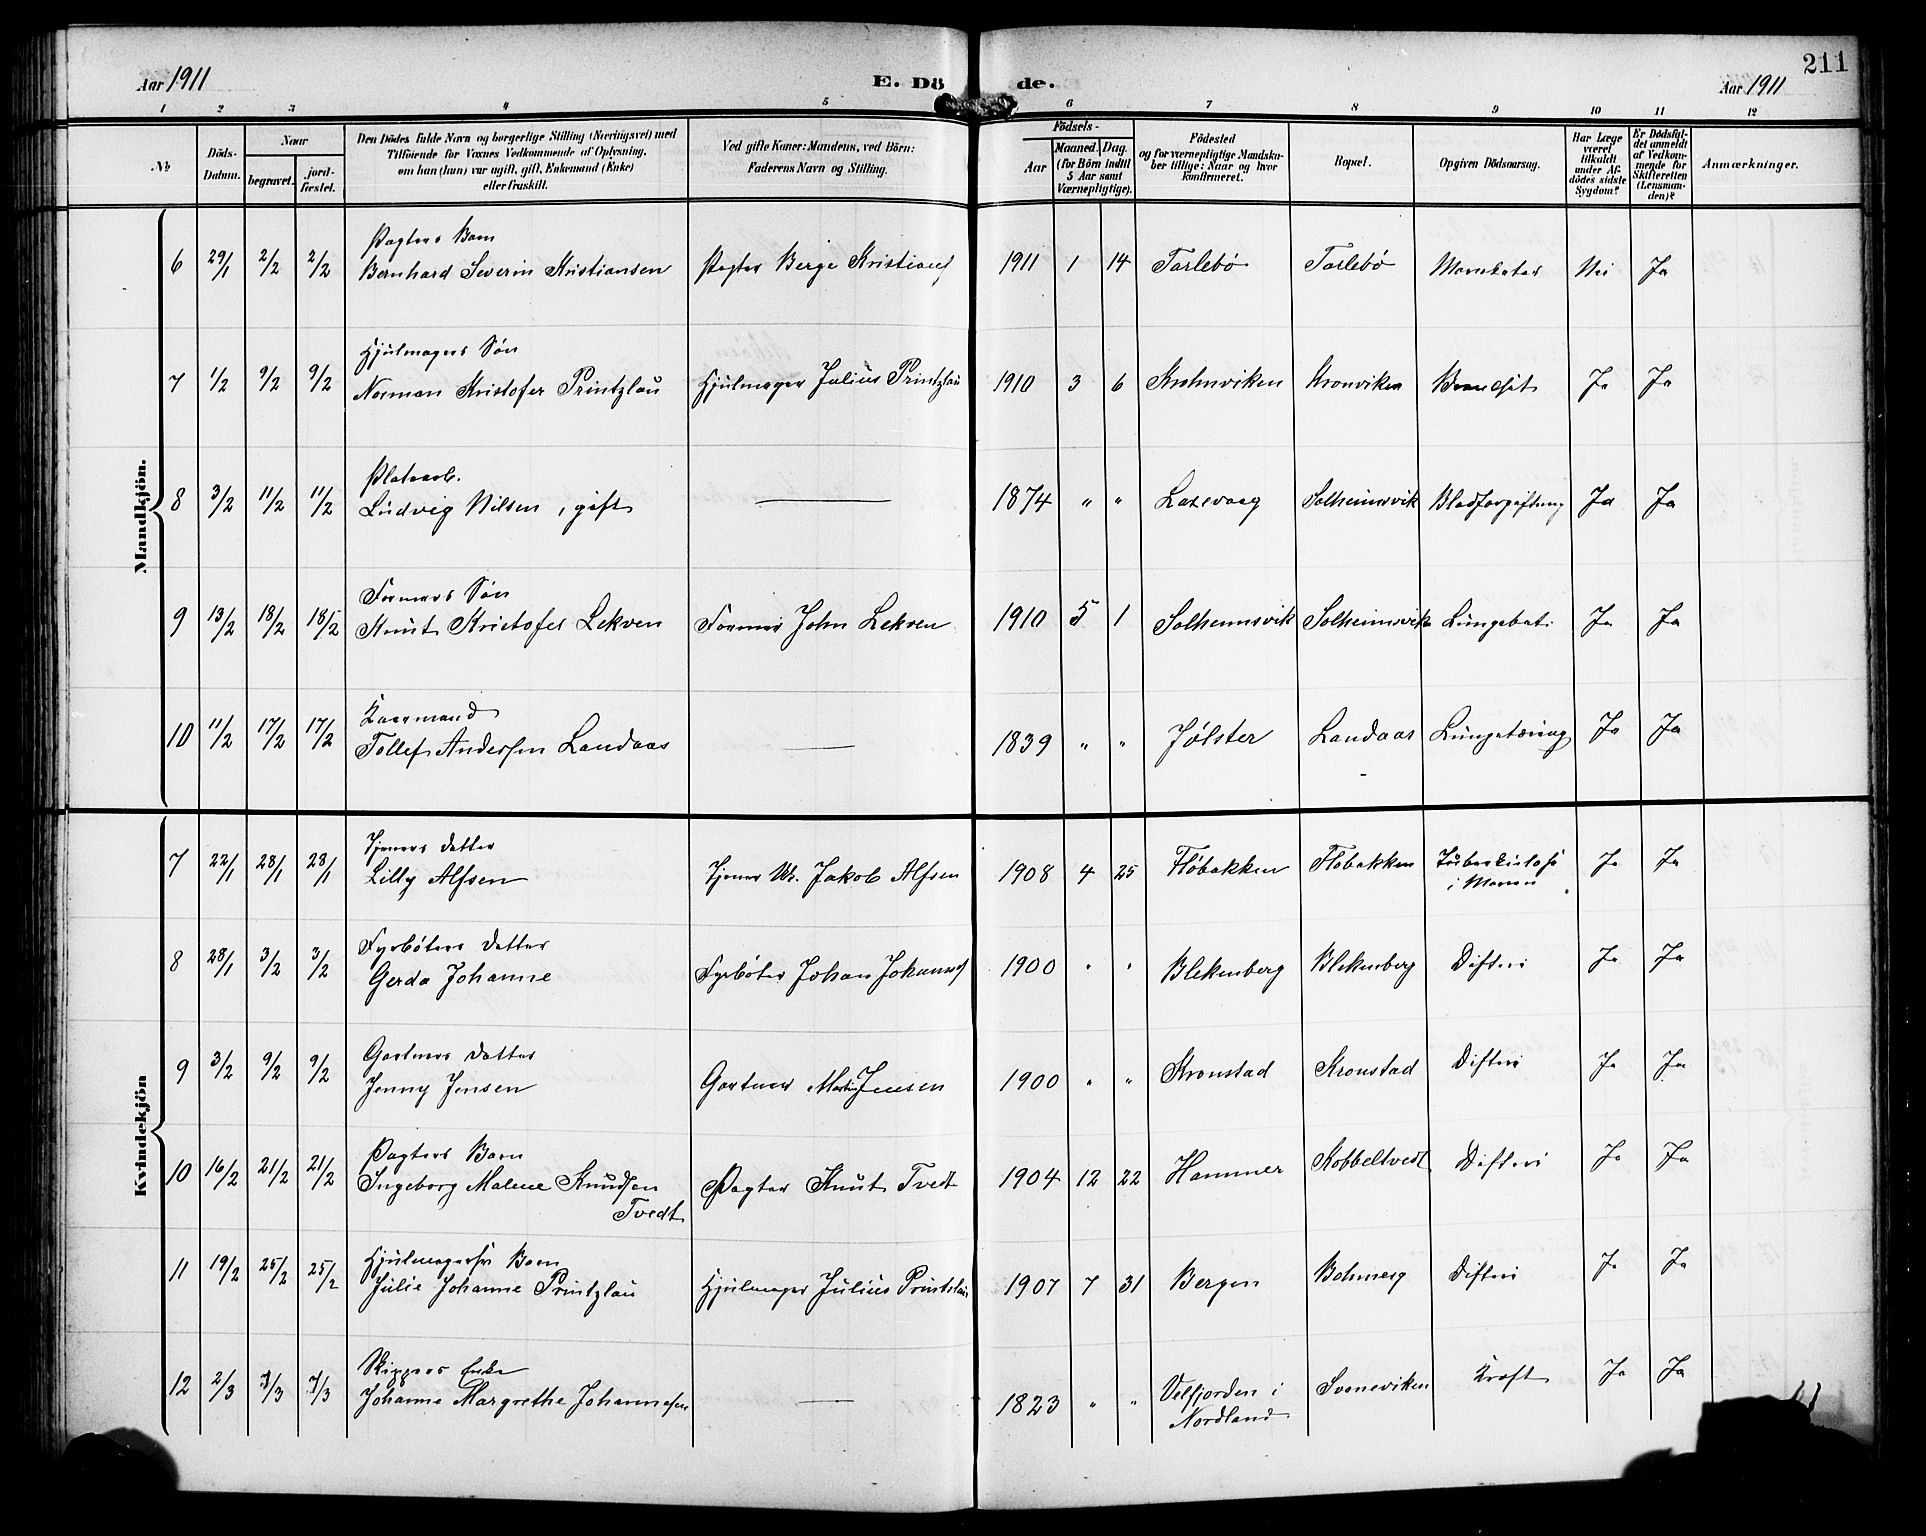 Aar 1911
E. Döde.
211
Aar 1911
1 2 3 4 5 6 7 8 9 10 11 12
No
Döds-Datum.
Naar
begravet.
jordfæstet.
Den Dödes fulde Navn og borgerlige Stilling (Næringsvei) med
Tilföiende for Voxnes Vedkommende af Oplysning,
om han (hun) var ugift, gift, Enkemand (Enke)
eller fraskilt.
Ved gifte Koner: Mandens, ved Börn:
Faderens Navn og Stilling.
Födsels-
Aar
Maaned. Dag.
(for Börn indtil
5 Aar samt
Værnepligtige).
Födested
og for værnepligtige Mandskaber tillige: Naar og hvor
konfirmeret.
Bopæl.
Opgiven Dödsaarsag.
Har Læge
været
tilkaldt
under Afdödes sidste
Sygdom?
Er Dödsfaldet anmeldt
af Vedkommende for
Skifteretten
(Lensmanden)?
Anmærkninger.
Mandkjön.
Pagters Barn
6 29/1 2/2 2/2 Bernhard Severin Kristiansen Pagter Berge Kristians 1911 1 14 Tarlebø Tarlebø Nei Ja
Hjulmagers Søn
7 1/2 9/2 9/2 Norman Kristofer Printzlau Hjulmager Julius Printzlau 1910 3 6 Kronviken Ja Ja
Platearb.
8 3/2 11/2 11/2 Ludvig Nilsen, gift — 1874 " " Laxevaag Solheimsvik Blodforgiftning Ja Ja
Formers Søn
9 13/2 18/2 18/2 Knut Kristofer Lekven Former John Lekven 1910 5 1 Solheimsvik Solheimsvik Lungebet. Ja Ja
Kaarmand
10 11/2 17/2 17/2 Tollef Andersen Landaas — 1839 " " Jølster Landaas Lungetæring Ja Ja
Kvindekjön
Tjeners Datter
7 22/1 28/1 28/1 Lilly Alfsen Tjener Jakob Alfsen 1908 4 25 Fløbakken Fløbakken Tuberkulose Ja Ja
i Maven
Fyrbøters Datter
8 28/1 3/2 3/2 Gerda Johanne Fyrbøter Johan Johannes 1900 " " Blekenberg Blekenberg Difteri Ja Ja
Gartners Datter
9 3/2 9/2 9/2 Jenny Jensen Gartner Martin Jensen 1900 " " Kronstad Kronstad Difteri Ja Ja
Pagters Barn
10 16/2 21/2 21/2 Ingeborg Malene Knudsen Pagter Knut Tvedt 1904 12 22 Hammer Kobbeltvedt Difteri Ja Ja
Tvedt
Hjulmagers Barn
11 19/2 25/2 25/2 Julie Johanne Printzlau Hjulmager Julius Printzlau 1907 7 31 Bergen Difteri Ja Ja
Skippers Enke
12 2/3 7/3 7/3 Johanne Margrethe Johannesen — 1823 " " Velfjorden i Svoneviken Kræft Ja Ja
Nordland